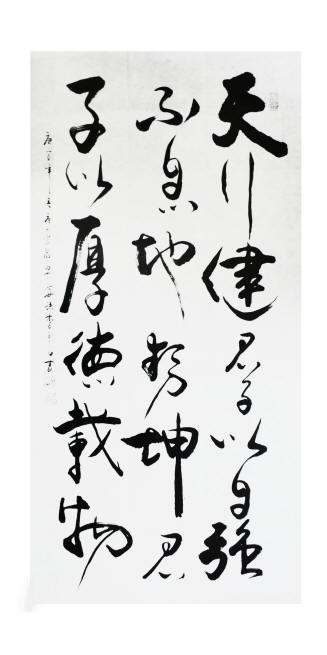 天行健君子以自強
不息地势坤君
子以厚德載物